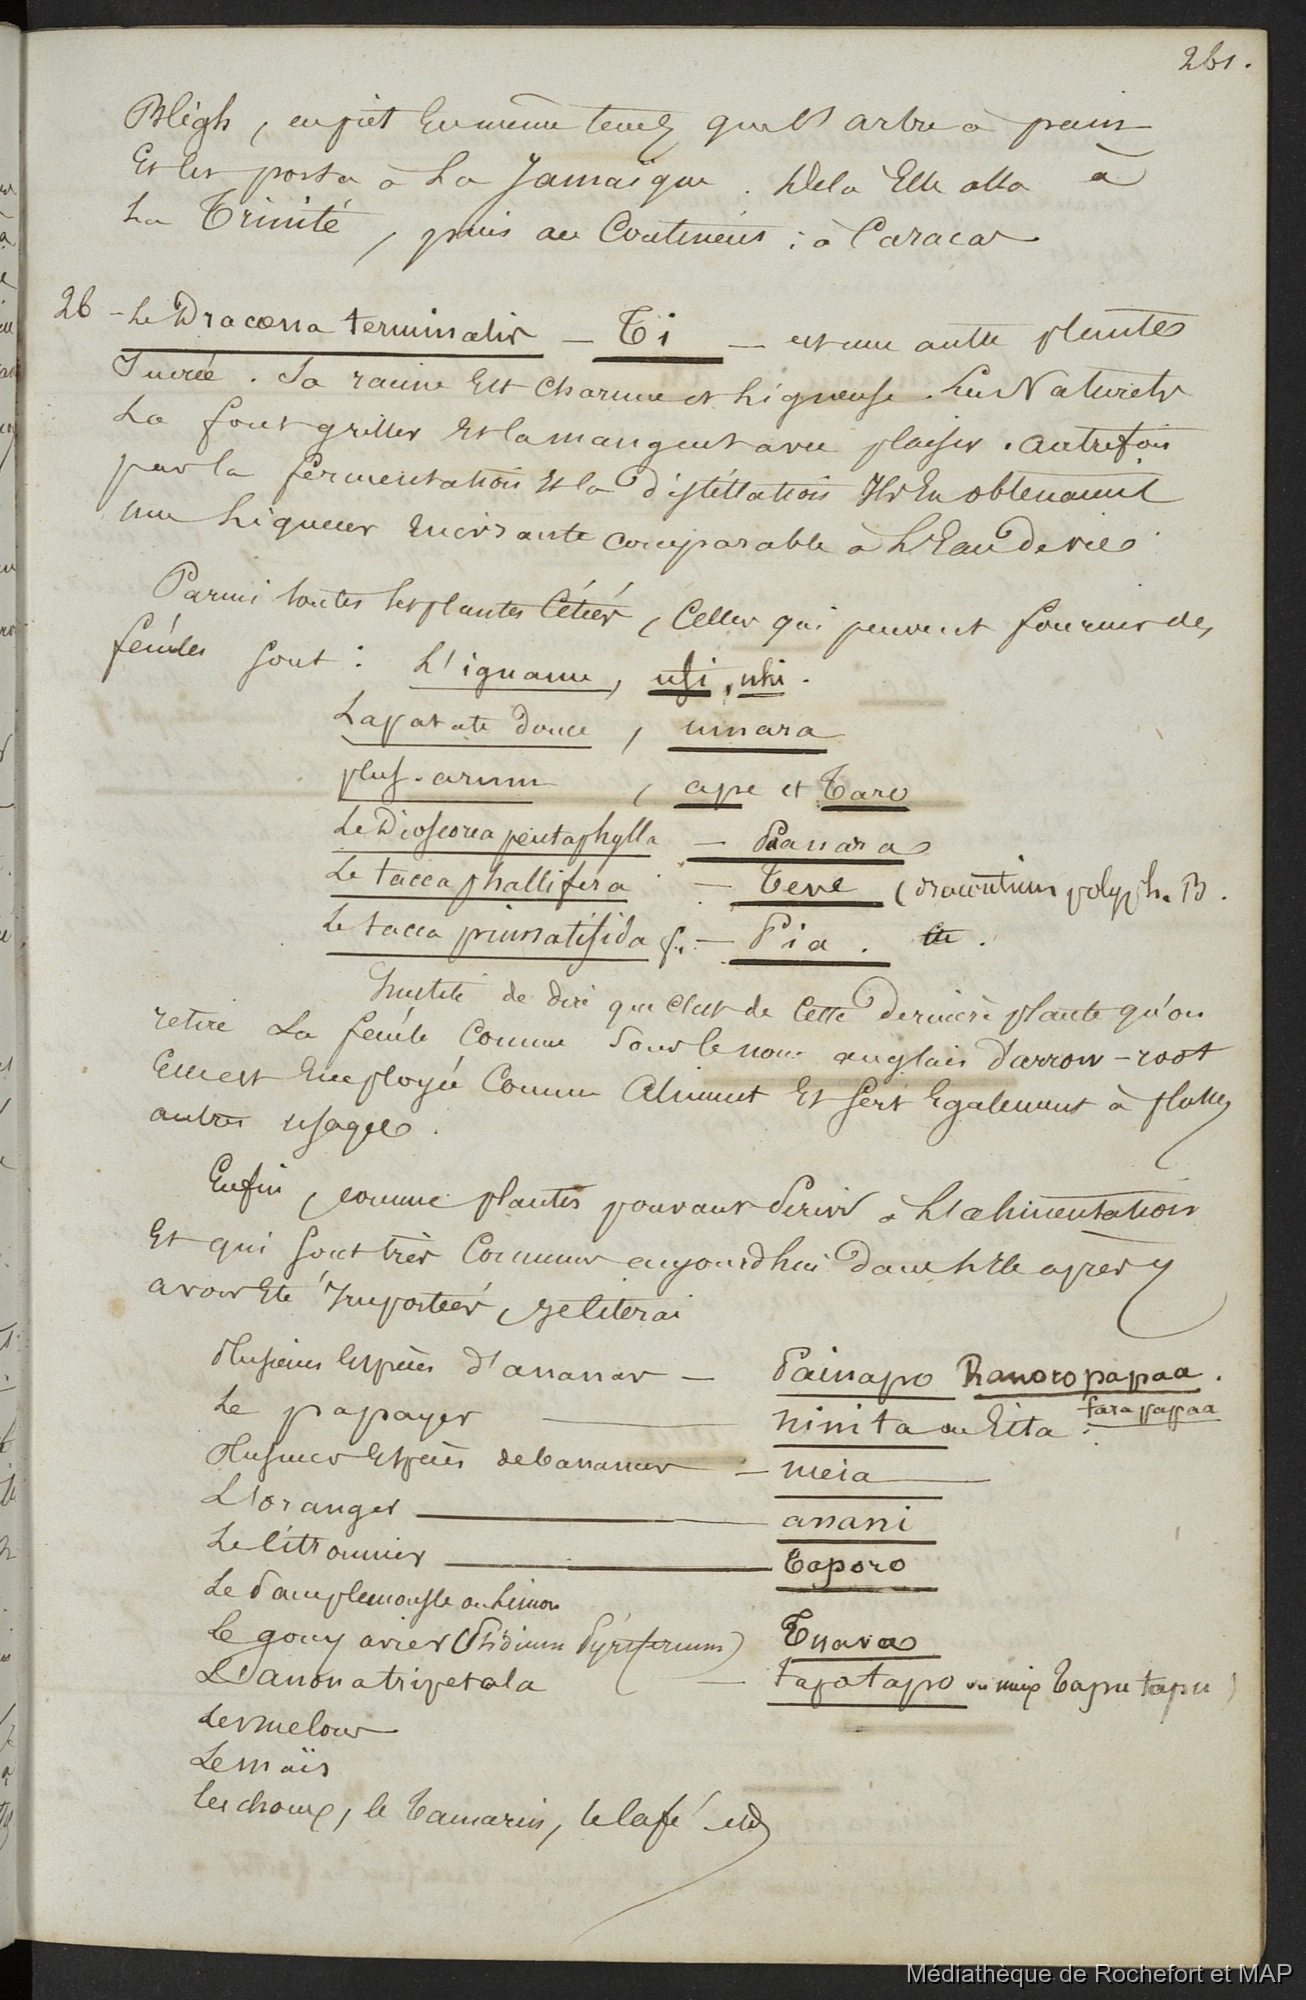 261.
Bligh, en prit En même temps que l'arbre à pain
Et les porta à La Jamaïque. Dela Elle alla à
La Trinité, puis au Continent : à Caracas
26 - Le Dracoena terminalis — Ti — est une autre plante
Sucrée. Sa racine Est charnue et Ligneuse. Les Naturels
La font griller Et la mangent avec plaisir. autrefois
par la fermentation Et la distillation Ils En obtenaient
une Liqueur Enivrante comparable à L'Eau De vie
Parmi toutes les plantes Citées, Celles qui peuvent fournir des
fécules sont : L'igname, ufi, uhi.
La patate douce, umara
plus. arum, ape et Taro
Le Dioscorea pentaphylla — Patara
Le tacca phallifera — Teve (dracontium polyph. B.
Le tacca pinnatifida f. — Pia.
Inutile de dire que C'est de Cette dernière plante qu'on
retire La fécule Connue Sous le nom anglais D'arrow-root
Elle est Employée Comme Aliment Et Sert Egalement à plusrs
autres usages.
Enfin, comme plantes pouvant Servir à L'alimentation
Et qui sont très Communes aujourd'hui Dans L'Ile après y
avoir Eté Importées, je Citerai
Plusieurs Espèces d'ananas — Painapo
papaa.
Le papayer — ninita ou Eita.
fara papaa
Plusieurs Espèces de bananes — meia
L'oranger — anani
Le Citronnier — Taporo
Le Pamplemousse ou Limon
Le goyavier (Psidium Pyriferum) Tuava
L'anona tripetala — tapotapo ou mieux Taputapu)
Les melons
Le maïs
les choux, le Tamarin, le Café etc
Médiathèque de Rochefort et MAP